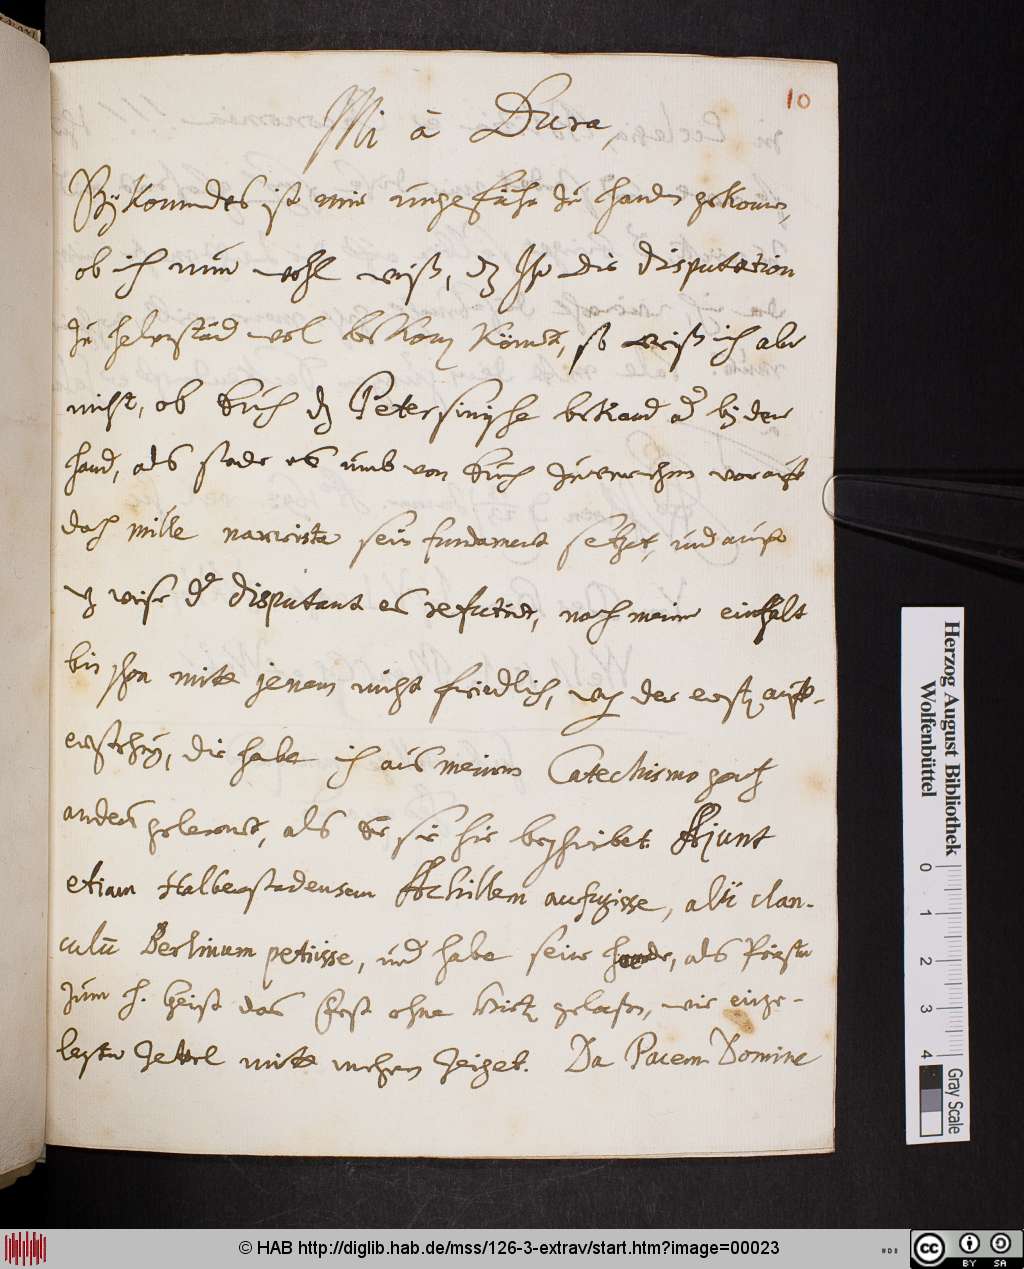 10
Mi à Dura,
Bÿkommdes ist mir ungefähr zu handen gekomen,
ob ich nun wohl weiß, dz Ihr die disputation
zu helmstäd wol bekom könnet, so weiß ich aber
nicht, ob Euch dz Petersinische bekand od by der
hand, als sende es umb von Euch zuvernehmen worauff
doch mille narrista sein fundament setzet, und auff
weise der disputant es refutiret, nach meine einfalt
bin schon mitt jenem nicht friedlich, von der ersten auff-
erstehung, die habe ich aus meinem Catechismo gantz
anders gelernet, als Er sie hie beschreibet. Ajunt
etiam Halberstadensem Achillem aufugisse, alii clan-
culū Berlinum petiisse, und habe seine heerde, als Priester
zum h. Geist das Fest ohne hirten gelassen, wie einge-
legter Zettel mitt mehrem zeiget. Da Pacem Domine
Herzog August Bibliothek
Wolfenbüttel
0 1 2 3 4
Gray Scale
© HAB http://diglib.hab.de/mss/126-3-extrav/start.htm?image=00023
cc BY SA